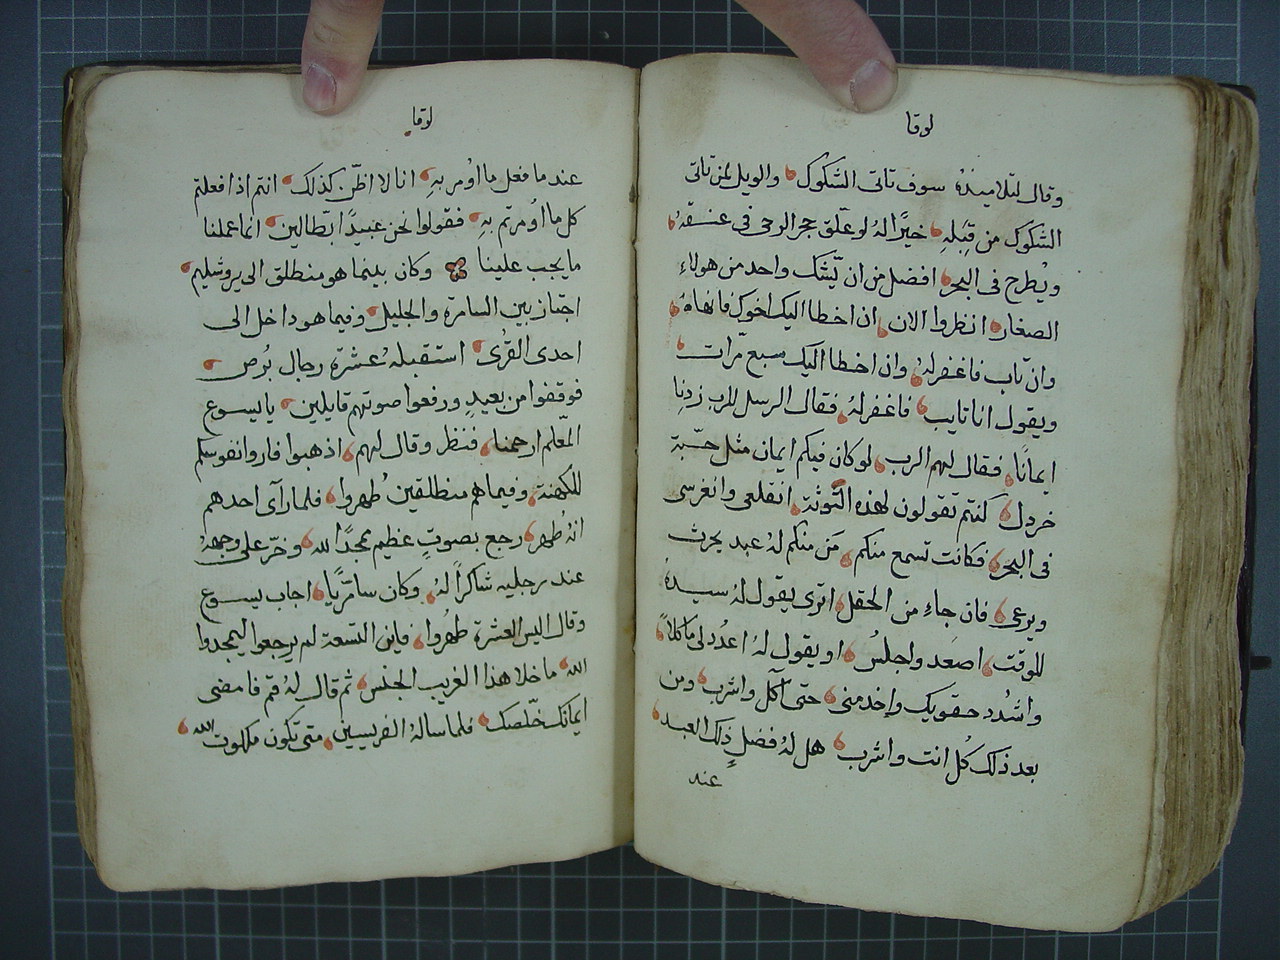 لوقا
وقال لتلاميذهُ سوف تاتى الشكوك والويل لمن تاتى
الشكوك من قِبَلهِ خيرًا لهُ لو عُلّق حجر الرحى فى عنقهُ
ويُطرح فى البحر افضل من ان يُشك واحد من هولاءِ
الصغار انظروا الان ان اخطا اليك اخوك فانهاهُ
وان تاب فاغفرلهُ وان اخطا اليك سبع مّرات
ويقول انا تايب فاغفرلهُ فقال الرسل للرب زدنِا
ايمانًا فقال لهم الرب لوكان فيكم ايمان مثل حّبة
خردل كنتم تقولون لهذه التّوثة انقلعى وانغرسى
فى البحر فكانت تسمع منكم مَن منكم لهُ عبد يحرث
ويرعى فان جاءِ من الحقل اترى يقول لهُ سيدهُ
للوقت اصعد واجلسُ او يقول لهُ اعدُد لى ماكلاً
واشدُد حقويك واخدمنى حتى آكل واشرب ومن
بعد ذلك كُل انت واشرب هل لهُ فضلٍ ذلك العبد
عند
لوقا
عندما فعل ما اوُمر بهِ انا لا اظنّ كذلك انتم اذا فعلتم
كل ما اوُمرتم بهِ فقولوا نحن عبيدًا بطالين انما عملنا
ما يجب علينا وكان بينما هو منطلق الى يروشليم
اجتاز بين السامرة والجليل وفيما هو داخل الى
احدى القرى استقبلهُ عشرة رجال بُرص
فوقفوا من بعيدٍ ورفعوا صوتهم قايلين يا يسوع
المعّلم ارحمنا فنظر وقال لهم اذهبوا فاروا نفوسكم
للكهنة وفيماهم منطلقين طُهروا فلما رآى احدهم
انهُ طُهر رجع بصوتٍ عظيم ممجدًا لله وخرّ على وجههُ
عند رجليه شاكراً لهُ وكان سامّريًا اجاب يسوع
وقال اليس العشرة طهُروا فاين التسعة لم يرجعوا ليمجدوا
الله ما خلا هذا الغريب الجنس ثم قال لهُ قم فامضى
ايمانك خّلصك فلما سالهُ الفريسين متى تكون ملكوت الله